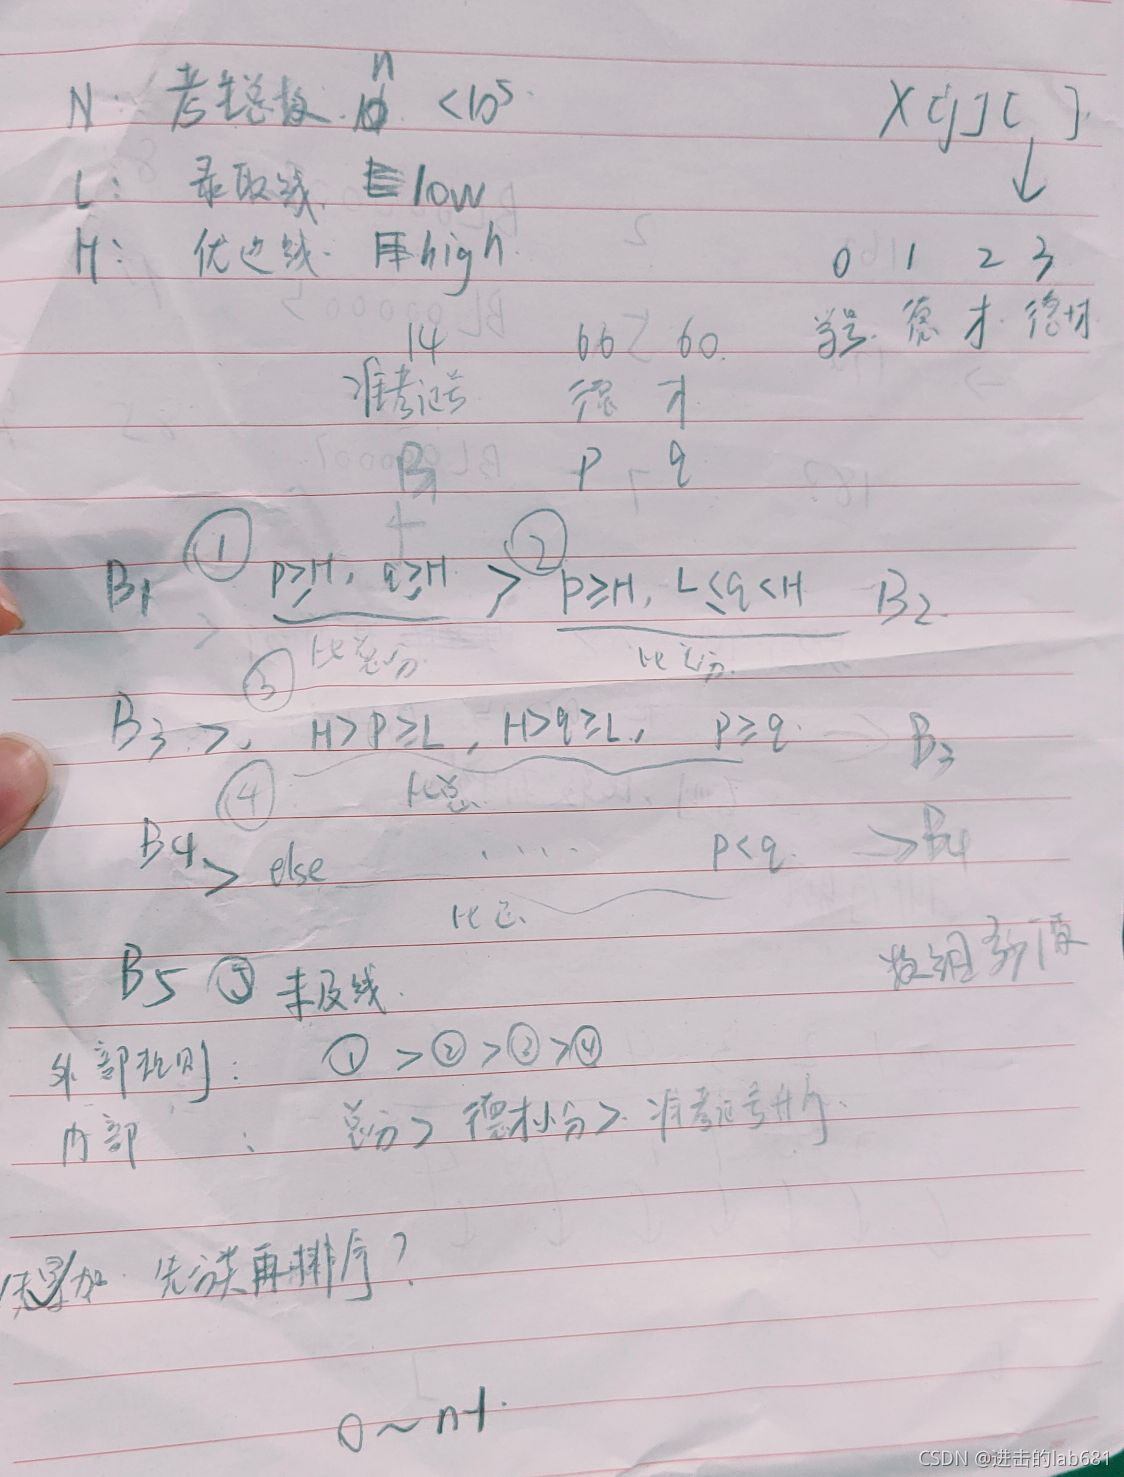 N: 考生总数 n <10⁵. X[j][ ].
L: 录取线 low
H: 优先线 high
0 1 2 3
学号 德 才 德才
14 66 60
准考证号 德 才
B p q
B1 ① p≥H, q≥H > ② p≥H, L≤q<H B2
比总分 比总分
B3 >, ③ H>P≥L, H>q≥L, p≥q. B3
比总.
B4 > ④ else ····· p<q. → B4
比总.
B5 ⑤ 未及线.
外部规则: ① > ② > ③ > ④
内部: 总分> 德才分> 准考证号升序.
先分类再排序?
0~n-1.
CSDN @进击的lab681